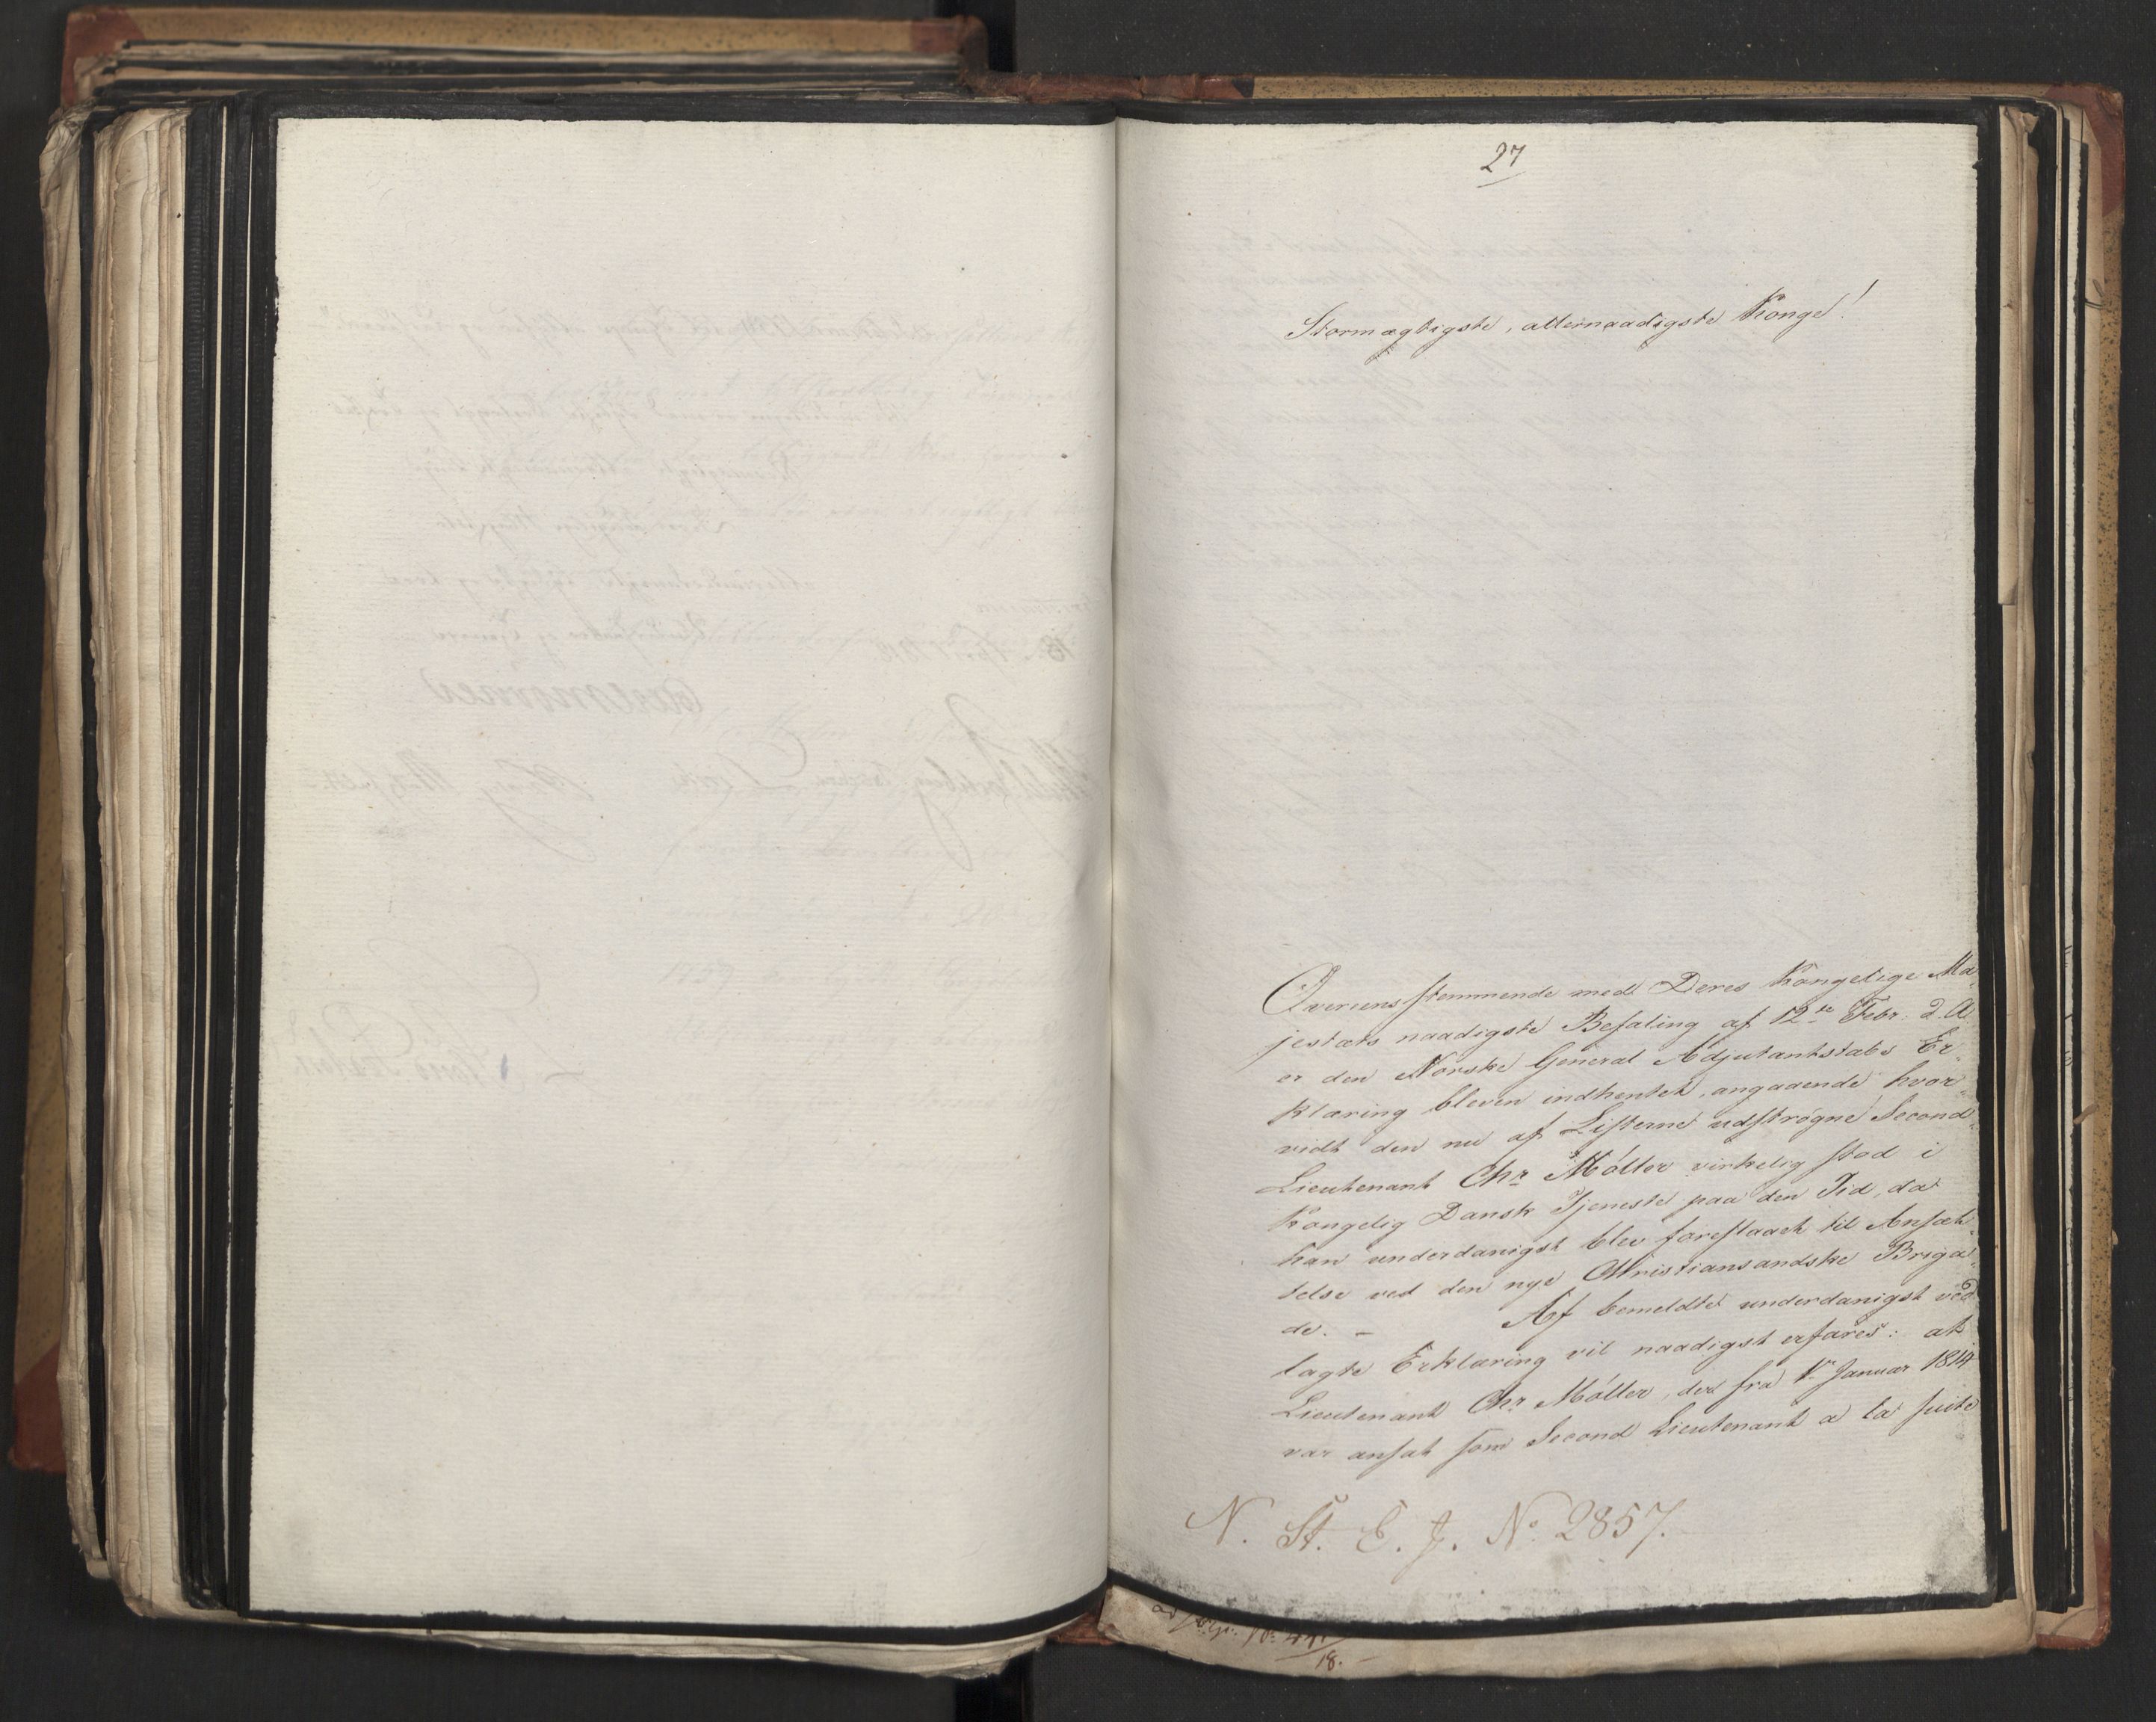 27
Stormægtigste, allernaadigste Konge!
Overeensstemmende med Deres Kongelige Ma-
jestæts naadigste Befaling af 12te Febr: d. A
er den Norske General Adjutantstabs Er-
klæring bleven indhentet, angaaende hvor-
vidt den nu af Listerne udstrøgne Second-
Lieutenant Chr Møller virkelig stod i
Kongelig Dansk Tjeneste paa den Tid, da
han underdanigst blev foreslaaet til Ansæt-
telse ved den nye Christiansandske Briga-
de. –
Af bemeldte underdanigst ved-
lagte Erklæring vil naadigst erfares: at
Lieutenant Chr Møller, der fra 1te Januar 1814
var ansat som Second Lieutenant a la suite
N. St. E. J. No 2857.
18. –